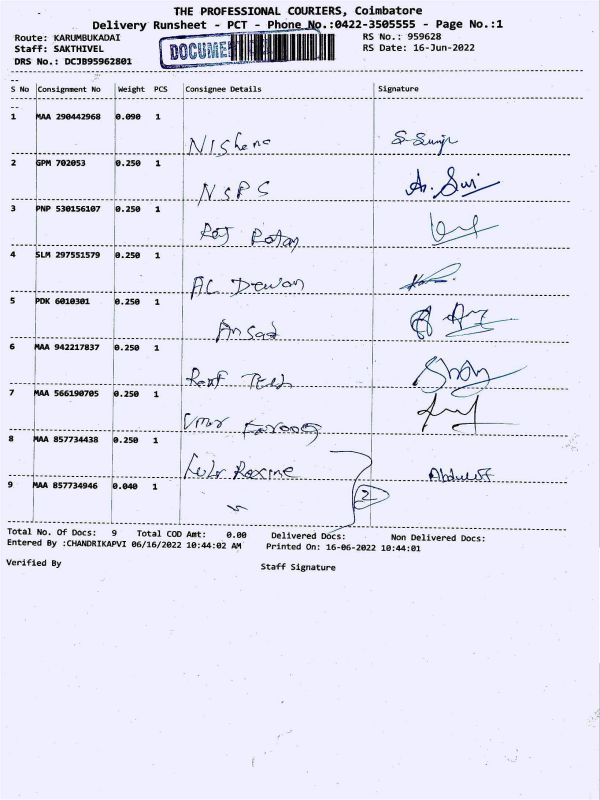 THE PROFESSIONAL COURIERS, Coimbatore
Delivery Runsheet - PCT - Phone No.:0422-3505555 - Page No.:1
Route: KARUMBUKADAI RS No.: 959628
Staff: SAKTHIVEL DOCUME RS Date: 16-Jun-2022
DRS No.: DCJB95962801
S No Consignment No Weight PCS Consignee Details Signature
1 MAA 290442968 0.090 1
Nishena
2 GPM 702053 0.250 1
NSPS
3 PNP 530156107 0.250 1
4 SLM 297551579 0.250 1
AC Dewan
5 PDK 6010301 0.250 1
Ansad
6 MAA 942217837 0.250 1
7 MAA 566190705 0.250 1
Umar Farooq
8 MAA 857734438 0.250 1
9 MAA 857734946 0.040 1
2
Total No. Of Docs: 9 Total COD Amt: 0.00 Delivered Docs: Non Delivered Docs:
Entered By :CHANDRIKAPVI 06/16/2022 10:44:02 AM Printed On: 16-06-2022 10:44:01
Verified By Staff Signature